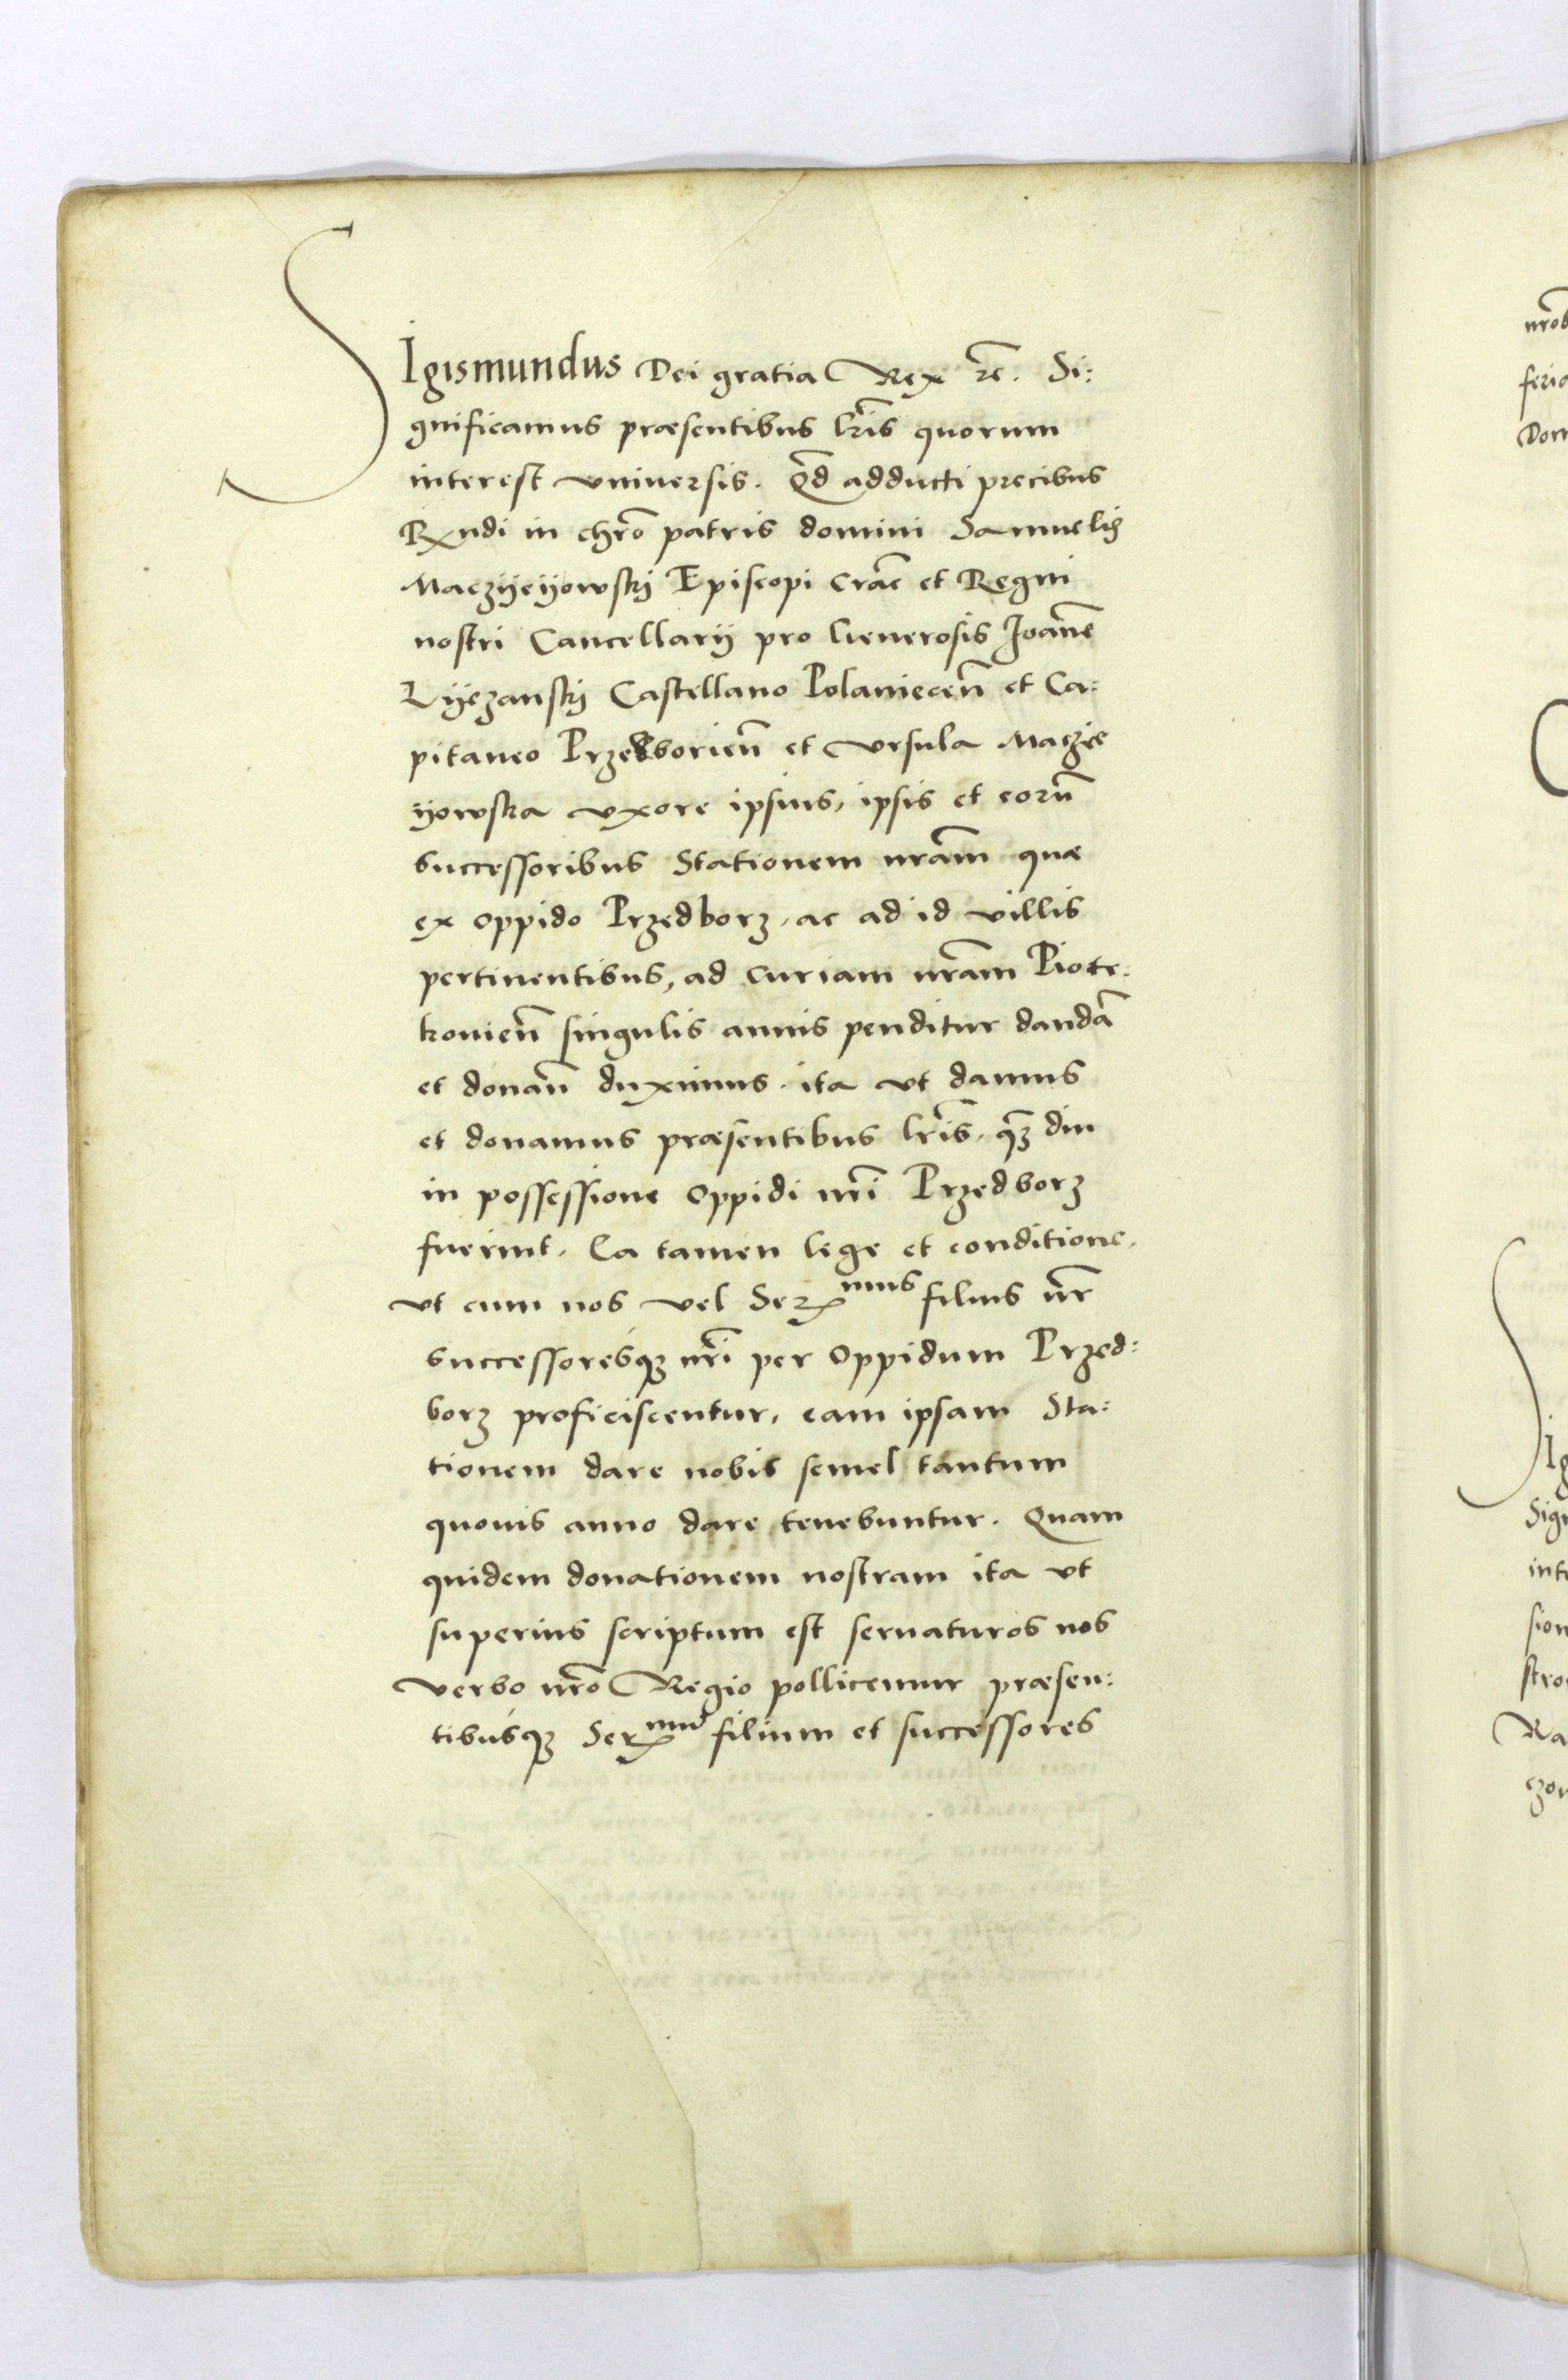 SIgismundus Dei gratia Rex rc̃. Si:
gnificamus præsentibus lr̃is quorum
interest vniuersis. Qd̃ adducti precibus
Rxndi in chr̃o patris domini Samuelis
Maczÿeÿowskÿ Episcopi Crac̃ et Regni
nostri Cancellarÿ pro Generosis Joanne
Lÿczanskÿ Castellano Polaniecen̄ et Ca:
pitaneo Przedborien̄ et Vrsula Maczie
ÿowska vxore ipsius, ipsis et eorū
successoribus Stationem nr̃am quæ
ex oppido Przedborz, ac ad id villis
pertinentibus, ad curiam nr̃am Piotr:
kouien̄ singulis annis penditur dandā
et donan̄ duximus. ita vt damus
et donamus præsentibus lr̃is, qz̃ diu
in possessione oppidi nr̃i Przedborz
fuerint. Ea tamen lege et conditione,
vt cum nos vel Serxmus filius nr̃
successoresq nr̃i per oppidum Przed:
borz proficiscentur, eam ipsam Sta:
tionem dare nobis semel tantum
quouis anno dare tenebuntur. Quam
quidem donationem nostram ita vt
superius scriptum est seruaturos nos
verbo nr̃o Regio pollicemur præsen:
tibusq Serxmū filium et successores
nr̃os
feria
Dom
Ig
Sign
inte
sion
stro
Ra
czow